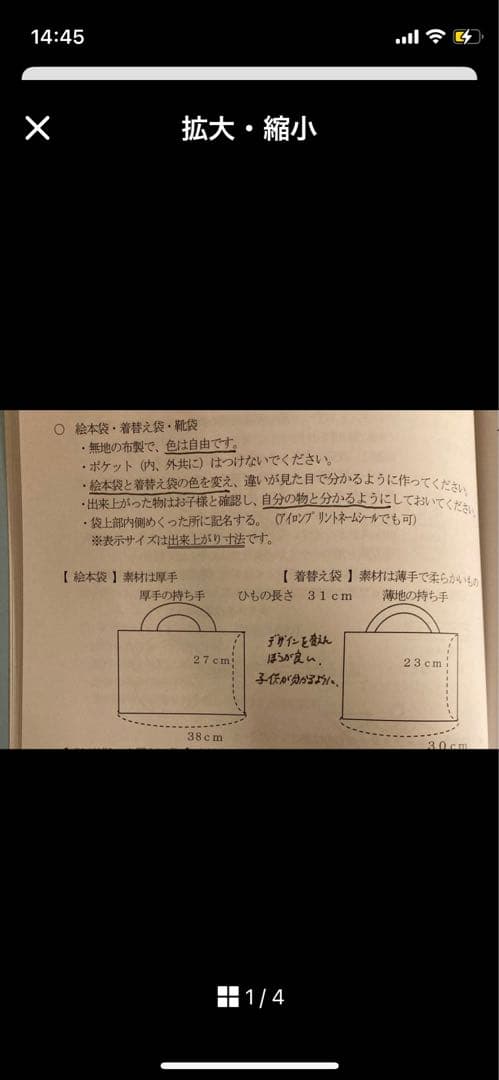 14:45
拡大・縮小
○ 絵本袋・着替え袋・靴袋
・無地の布製で、色は自由です。
・ポケット（内、外共に）はつけないでください。
・絵本袋と着替え袋の色を変え、違いが見た目で分かるように作ってください。
・出来上がった物はお子様と確認し、自分の物と分かるようにしておいてください
・袋上部内側めくった所に記名する。（ｱｲﾛﾝﾌﾟﾘﾝﾄﾈｰﾑｼｰﾙでも可）
※表示サイズは出来上がり寸法です。
【 絵本袋 】素材は厚手
【 着替え袋 】素材は薄手で柔らかいもの
厚手の持ち手 ひもの長さ ３１ｃｍ 薄地の持ち手
デザインを替えた
ほうが良い。
子供が分かるように、
２７ｃｍ
２３ｃｍ
38ｃｍ
３０ｃｍ
1 / 4